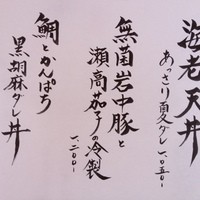 海老天丼
あっさり夏ダレ 一、〇五〇-
無菌岩中豚と
瀬高茄子の冷製
一、二〇〇-
鯛とかんぱち
黒胡麻ダレ丼